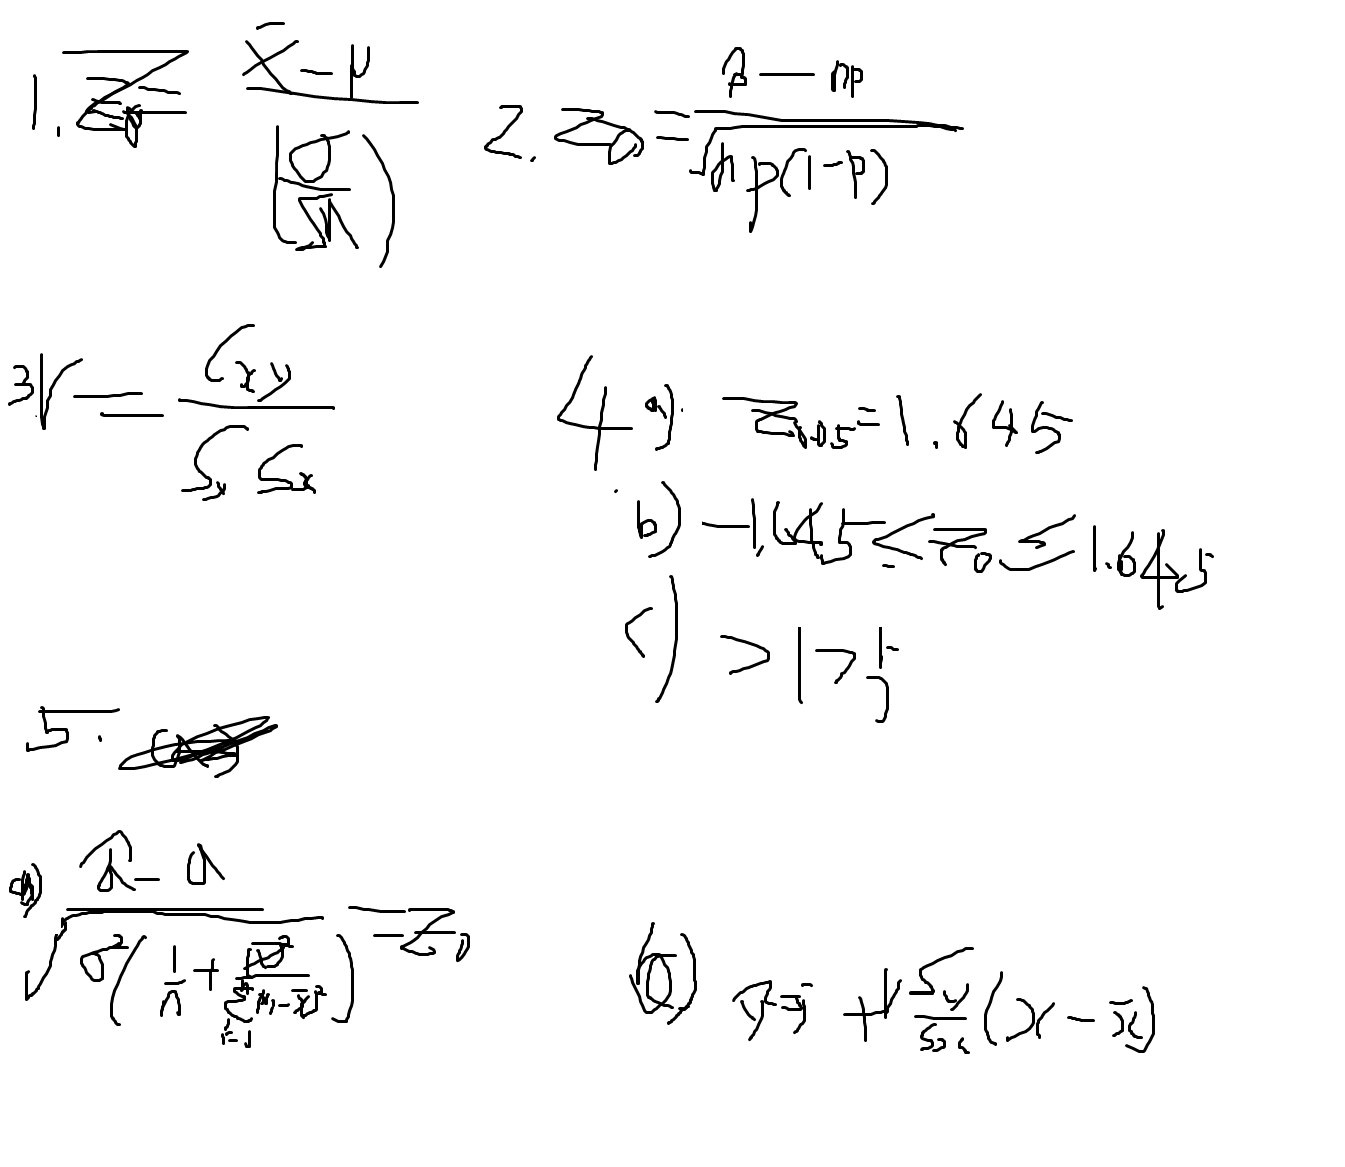 1. Z₀ = (x̄ - μ) / (σ/√n)
2. Z₀ = (p̂ - np) / √(np(1-p))
3 r = Cxy / (Sy Sx)
4 a) Z₀.₀₅ = 1.645
b) -1.645 ≤ Z₀ ≤ 1.645
c)
5.
a) (â - a) / √(σ²(1/n + x̄² / Σᵢ₌₁ⁿ(xᵢ - x̄)²)) = Z₀
b) ŷ = ȳ + r Sy/Sx (x - x̄)